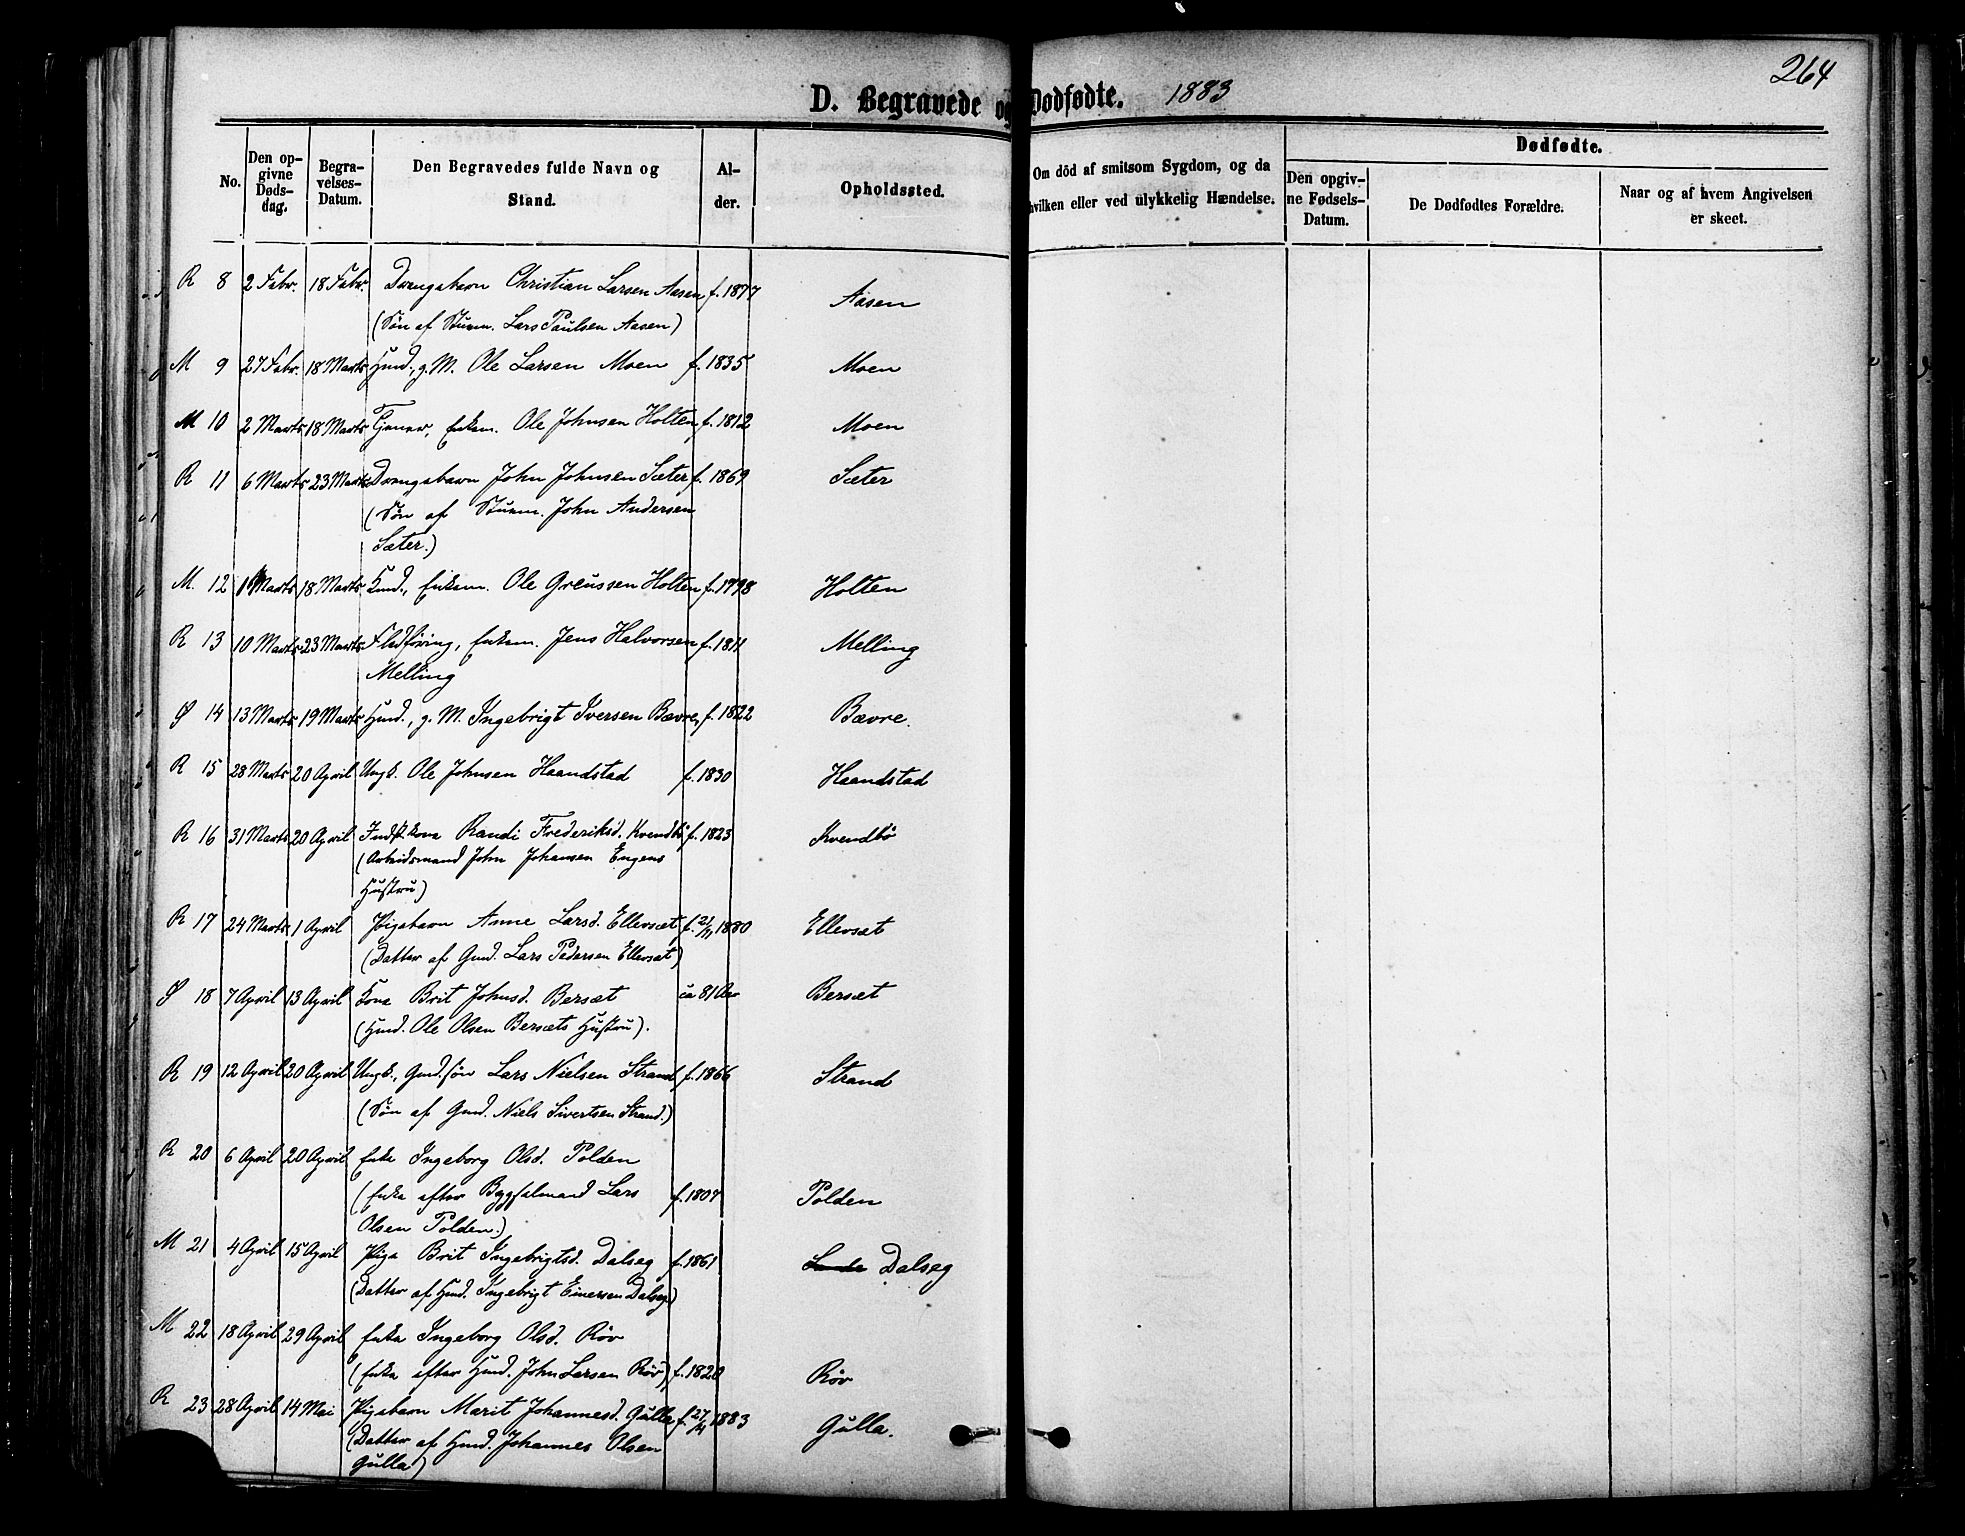 264
D. Begravede og Dødfødte. 1883
No.
Den opgivne Dødsdag.
Begravelses-Datum.
Den Begravedes fulde Navn og Stand.
Alder.
Opholdssted.
Om död af smitsom Sygdom, og da hvilken eller ved ulykkelig Hændelse.
Dødfødte.
Den opgivne Fødsels-Datum.
De Dødfødtes Forældre.
Naar og af hvem Angivelsen er skeet.
R 8 2 Febr. 18 Febr. Drengebarn Christian Larsen Aasen f. 1877 Aasen
(Søn af Lars Paulsen Aasen)
M 9 27 Febr. 18 Marts Hmd., g. M. Ole Larsen Moen f. 1835 Moen
M 10 2 Marts 18 Marts Enkem. Ole Johnsen Holten f. 1812 Moen
R 11 6 Marts 23 Marts Drengebarn John Johnsen Sæter f. 1869 Sæter
(Søn af John Andersen
Sæter.)
M. 12 Marts 18 Marts Enkem. Ole Greussen Holten f. 1798 Holten
R 13 10 Marts 23 Marts Fladføring, Enkem. Jens Halvorsen f. 1811 Melling
Melling
S 14 13 Marts 19 Marts Hmd., g. M. Ingebrigt Iversen Bævre, f. 1822 Bævre.
R 15 28 Marts 20 April Ungk. Ole Johnsen Haandstad f. 1830 Haandstad
R 16 31 Marts 20 April Indstkone Randi Frederiksd. Kvendbø f. 1823 Kvendbø
(Arbeidsmand John Johansen Engens
Hustru)
R 17 24 Marts 1 April Pigebarn Anne Larsd. Ellevsæt f. 21/11 1880 Ellevsæt
(Datter af Gmd. Lars Pedersen Ellevsæt)
S 18 7 April 13 April Kone Brit Johnsd. Bersæt ca 81 Aar Bersæt
(Hmd. Ole Olsen Bersæts Hustru).
R 19 12 April 20 April Ungk., Gmd.søn Lars Nielsen Strand f. 1866 Strand
(Søn af Gmd. Niels Sivertsen Strand.)
R 20 6 April 20 April Enke Ingeborg Olsd. Polden
(Enke efter Bygselmand Lars f. 1807 Polden
Olsen Polden.)
M 21 4 April 15 April Pige Brit Ingebrigtsd. Dalseg f. 1861 Dalseg
(Datter af Hmd. Ingebrigt Einersen Dalseg)
M 22 18 April 29 April Enke Ingeborg Olsd. Røv
(Enke efter Hmd. John Larsen Røv) f. 1820 Røv
R 23 28 April 14 Mai Pigebarn Marit Johannesd. Gulla f. 27/4 1883 Gulla.
(Datter af Hmd. Johannes Olsen
Gulla)